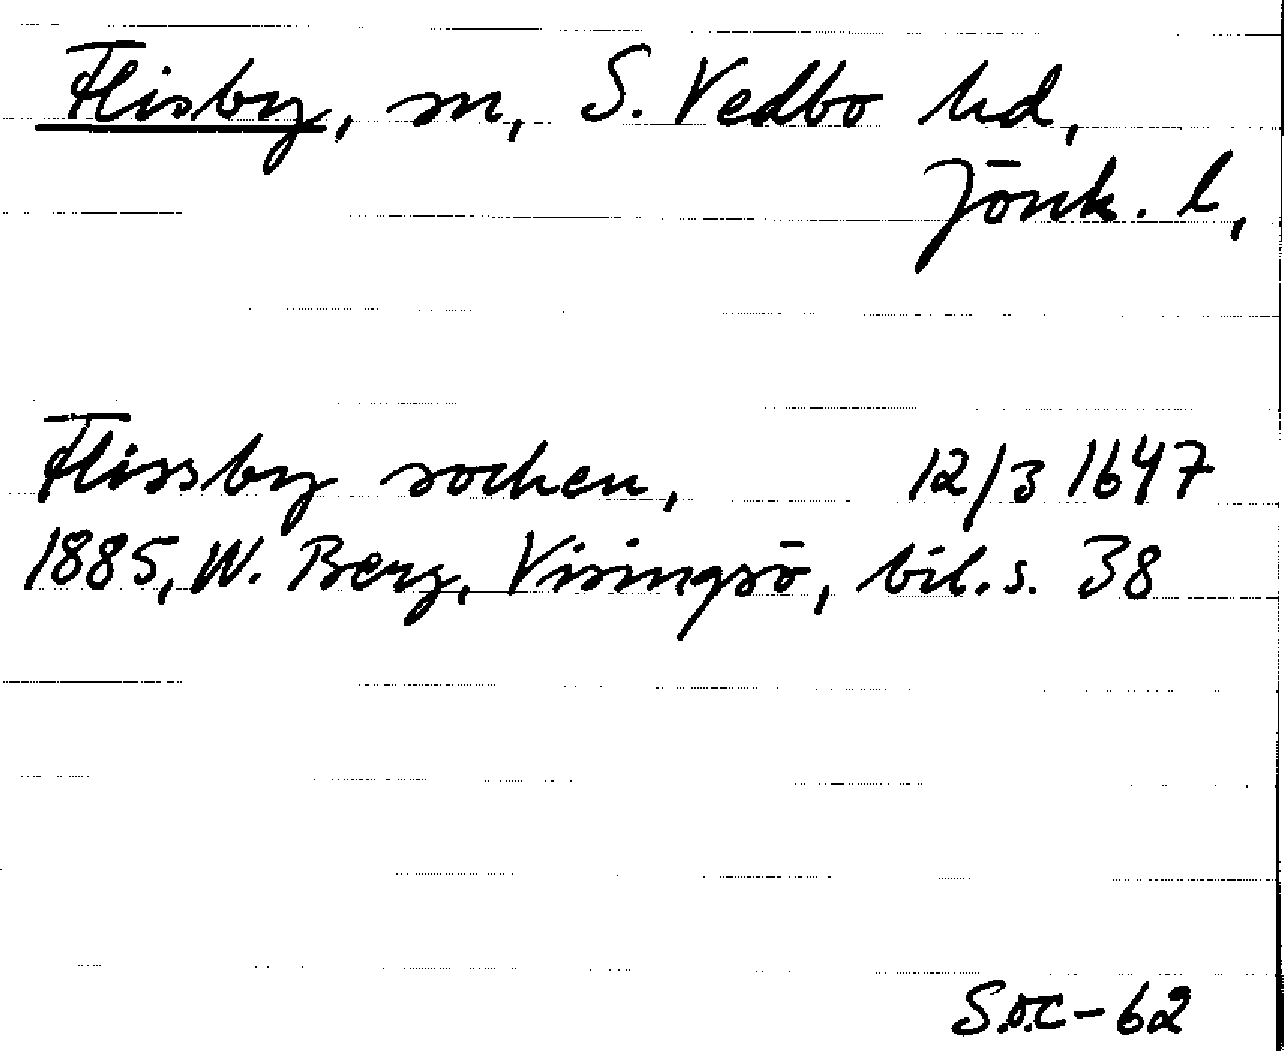 Flisby, sn, S. Vedbo hd,
Jönk. l,
Flissby sochen, 12/3 1647
1885, W. Berg, Visingsö, bil. s. 38
S.O.C-62